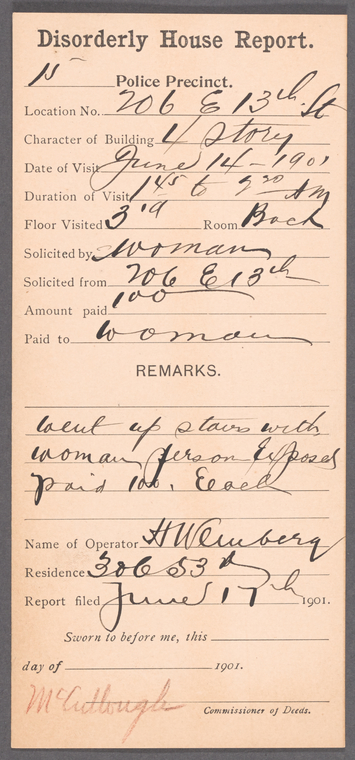 Disorderly House Report.
15 Police Precinct.
Location No. 206 E 13th St
Character of Building 4 story
Date of Visit June 14 - 1901
Duration of Visit 1 45 to 2 20 AM
Floor Visited 3rd Room Back
Solicited by woman
Solicited from 206 E 13th
Amount paid 100
Paid to woman
REMARKS.
went up stairs with
woman, person Exposed
paid 100. Each
Name of Operator
Residence 306 53rd
Report filed June 17th 1901.
Sworn to before me, this
day of 1901.
McCullough
Commissioner of Deeds.